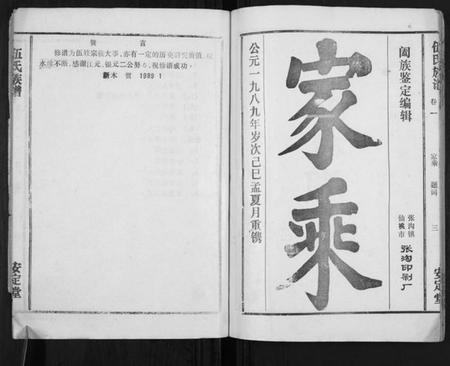 伍氏族谱
卷一
家乘 题词 三
安定堂
阖族鉴定编辑
家乘
公元一九八九年岁次己巳孟夏月重镌
仙桃市
张沟镇
张沟印刷厂
贺 言
修谱为伍姓宗族大事,亦有一定的历史研究价值,
水源不断,感谢江元、银元二公努力,祝修谱成功。
新木 贺 1989 1
伍氏族谱
安定堂